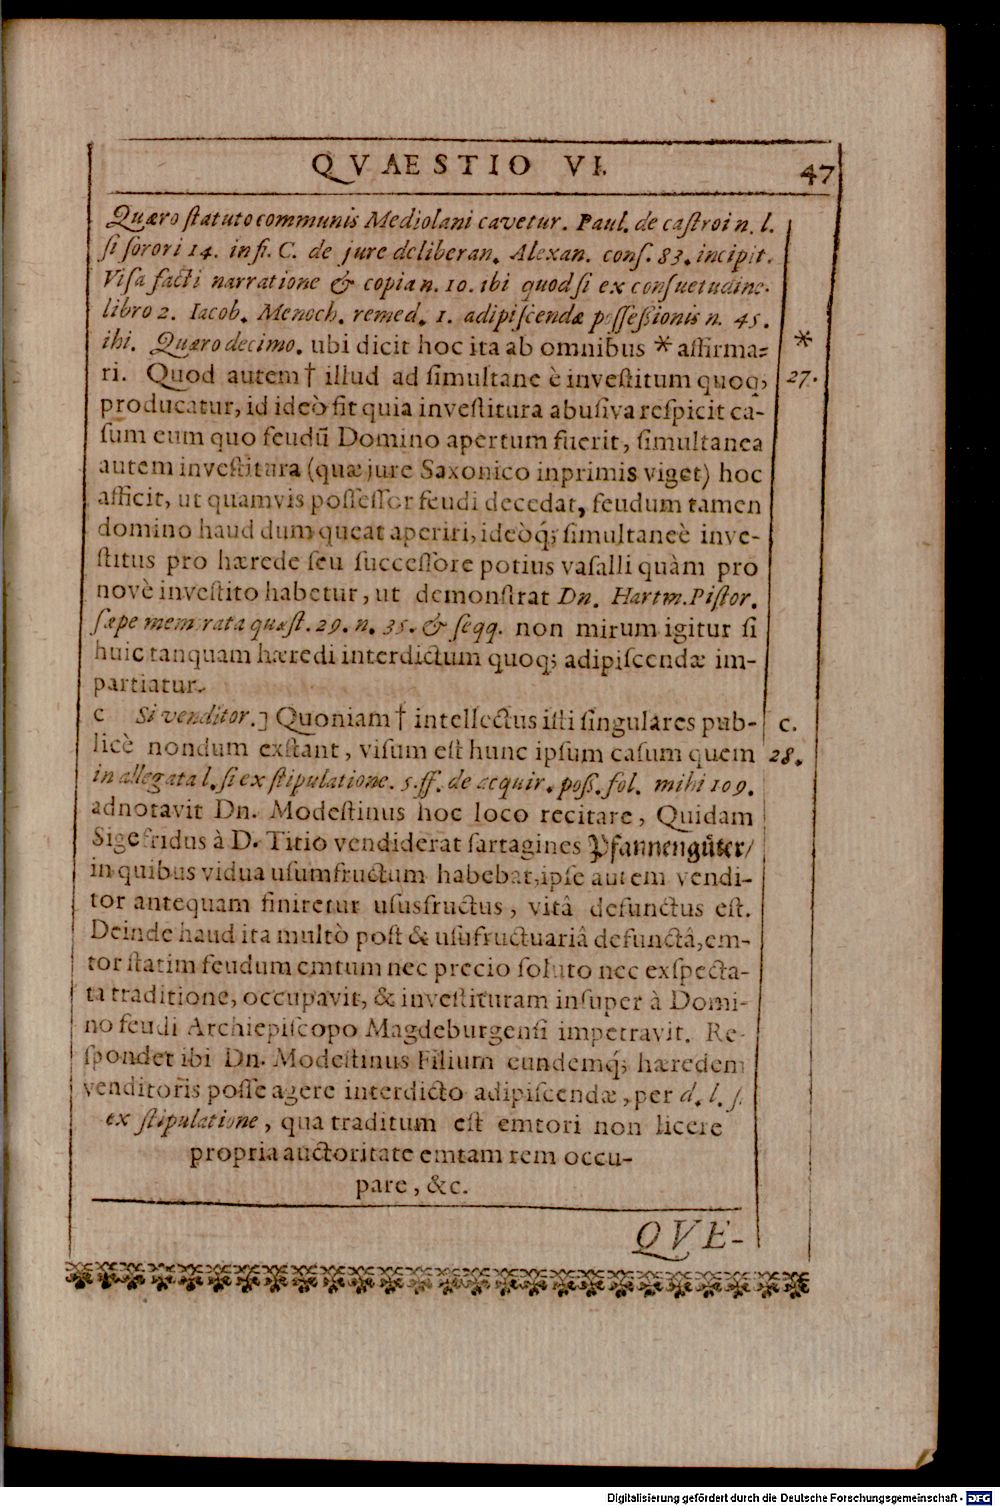 QVAESTIO VI. 47
Quæro statuto communis Mediolani cavetur. Paul. de castro in. l.
si sorori 14. in fi. C. de jure deliberan. Alexan. cons. 83. incipit.
Visa facti narratione & copia n. 10. ibi quod si ex consuetudine.
libro 2. Iacob. Menoch. remed. 1. adipiscendæ possessionis n. 45.
ibi. Quæro decimo. ubi dicit hoc ita ab omnibus * affirma- *
ri. Quod autem † illud ad simultane è investitum quoq; 27.
producatur, id ideò fit quia investitura abusiva respicit ca-
sum eum quo feudū Domino apertum fuerit, simultanea
autem investitura (quæ jure Saxonico inprimis viget) hoc
afficit, ut quamvis possessor feudi decedat, feudum tamen
domino haud dum queat aperiri, ideòq; simultaneè inve-
stitus pro hærede seu successore potius vasalli quàm pro
novè investito habetur, ut demonstrat Dn. Hartm. Pistor.
sæpe memorata quæst. 29. n. 35. & seqq. non mirum igitur si
huic tanquam hæredi interdictum quoq; adipiscendæ im-
partiatur.
c Si venditor.] Quoniam † intellectus isti singulares pub- c.
licè nondum exstant, visum est hunc ipsum casum quem 28.
in allegata l. si ex stipulatione. 5. ff. de acquir. poss. fol. mihi 109.
adnotavit Dn. Modestinus hoc loco recitare, Quidam
Sigefridus à D. Titio vendiderat sartagines Pfannengüter/
in quibus vidua usumfructum habebat, ipse autem vendi-
tor antequam finiretur ususfructus, vitâ defunctus est.
Deinde haud ita multò post & usufructuariâ defunctâ, em-
tor statim feudum emtum nec precio soluto nec exspecta-
ta traditione, occupavit, & investituram insuper à Domi-
no feudi Archiepiscopo Magdeburgensi impetravit. Re-
spondet ibi Dn. Modestinus Filium eundemq; hæredem
venditoris posse agere interdicto adipiscendæ, per d. l. s.
ex stipulatione, qua traditum est emtori non licere
propria auctoritate emtam rem occu-
pare, &c.
QVE-
Digitalisierung gefördert durch die Deutsche Forschungsgemeinschaft - DFG